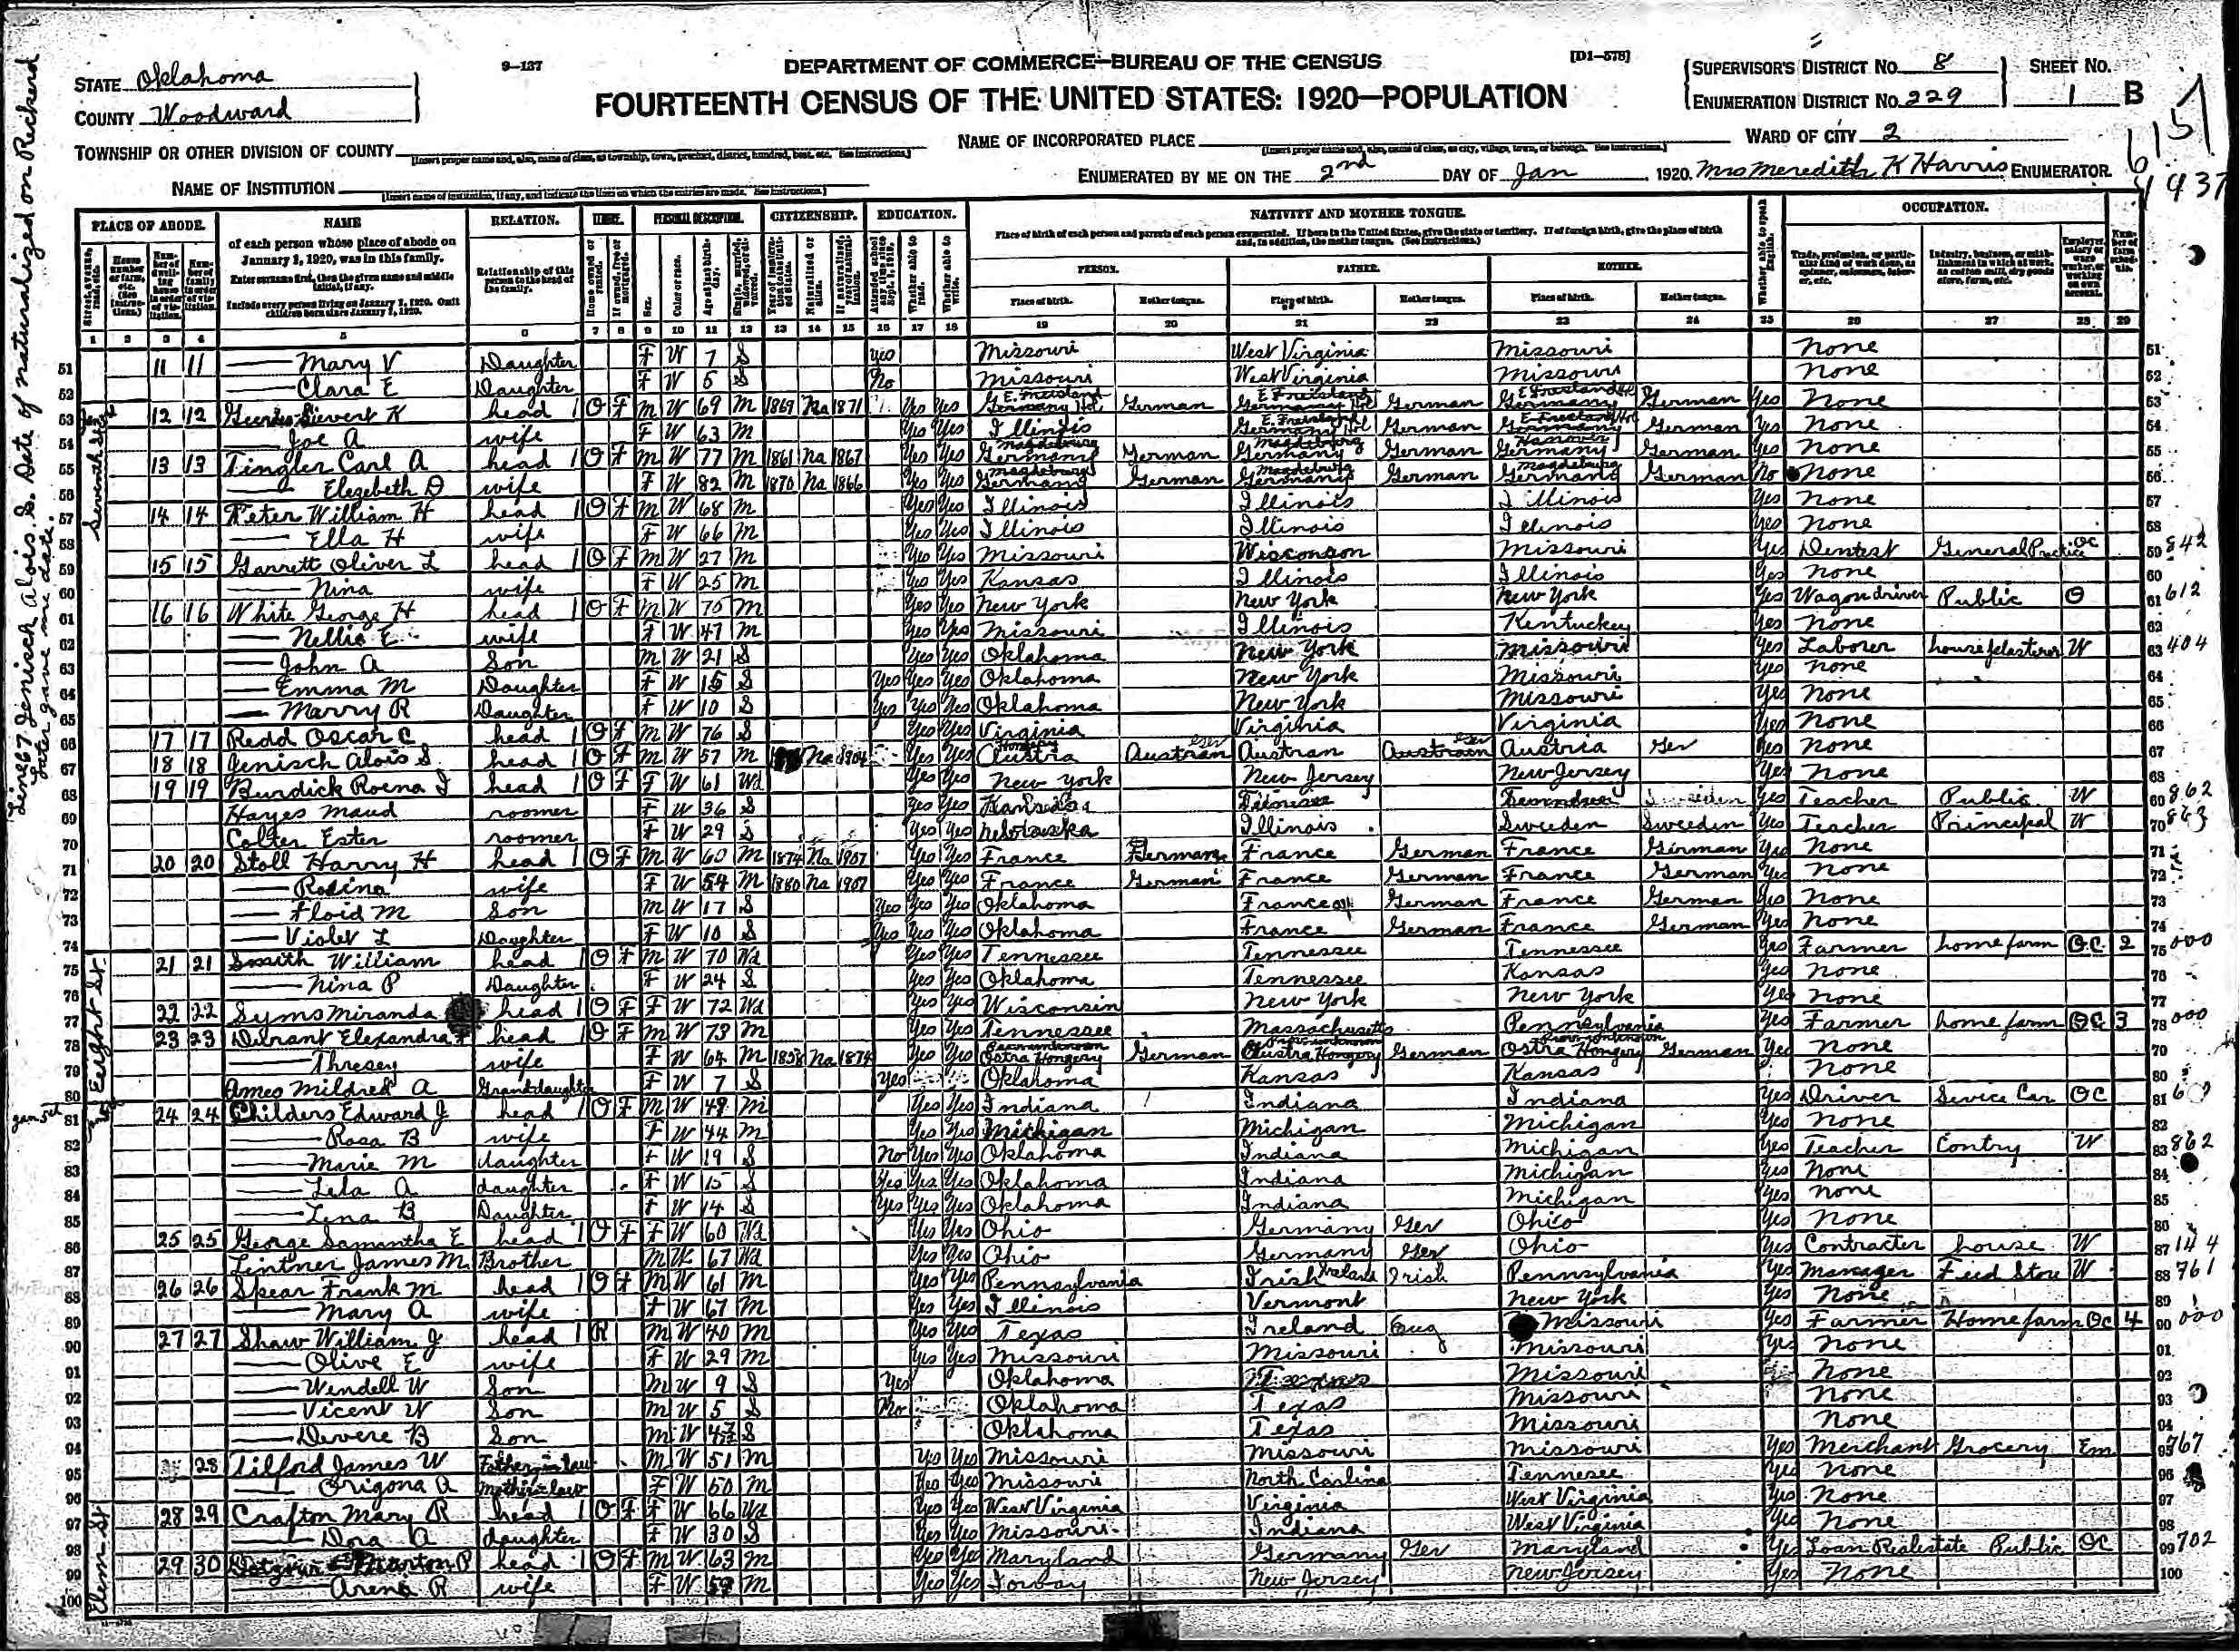 9-137
DEPARTMENT OF COMMERCE—BUREAU OF THE CENSUS
[D1-578]
FOURTEENTH CENSUS OF THE UNITED STATES: 1920—POPULATION
STATE Oklahoma
COUNTY Woodward
SUPERVISOR'S DISTRICT No. 8
ENUMERATION DISTRICT No. 229
SHEET No. 1 B
TOWNSHIP OR OTHER DIVISION OF COUNTY
NAME OF INCORPORATED PLACE
WARD OF CITY 2
NAME OF INSTITUTION
ENUMERATED BY ME ON THE 2nd DAY OF Jan, 1920. Mrs Meredith K Harris ENUMERATOR.
PLACE OF ABODE. NAME RELATION. PERSONAL DESCRIPTION. CITIZENSHIP. EDUCATION. NATIVITY AND MOTHER TONGUE. OCCUPATION.
of each person whose place of abode on January 1, 1920, was in this family.
Enter surname first, then the given name and middle initial, if any.
Include every person living on January 1, 1920. Omit children born since January 1, 1920.
Relationship of this person to the head of the family.
PERSON. FATHER. MOTHER.
Place of birth. Mother tongue. Place of birth. Mother tongue. Place of birth. Mother tongue.
1 2 3 4 5 6 7 8 9 10 11 12 13 14 15 16 17 18 19 20 21 22 23 24 25 26 27 28 29
51 11 11 — Mary V Daughter F W 7 S Yes Missouri West Virginia Missouri None 51
52 — Clara E Daughter F W 5 S No Missouri West Virginia Missouri None 52
53 12 12 Sievert K head 1 O F M W 69 M 1869 Na 1871 Yes Yes Germany German Germany German Germany German Yes None 53
54 — Joe A wife F W 63 M Yes Yes Illinois Germany German Germany German Yes None 54
55 13 13 Tingler Carl A head 1 O F M W 77 M 1861 Na 1867 Yes Yes Magdeburg Germany German Magdeburg Germany German Hanover Germany German Yes None 55
56 — Elezebeth D wife F W 82 M 1870 Na 1866 Yes Yes Magdeburg Germany German Magdeburg Germany German Magdeburg Germany German No None 56
57 14 14 Feter William H head 1 O F M W 68 M Yes Yes Illinois Illinois Illinois Yes None 57
58 — Ella H wife F W 66 M Yes Yes Illinois Illinois Illinois Yes None 58
59 15 15 Garrett Oliver L head 1 O F M W 27 M Yes Yes Missouri Wisconson Missouri Yes Dentest General Practice OC 59 842
60 — Nina wife F W 25 M Yes Yes Kansas Illinois Illinois Yes None 60
61 16 16 White George H head 1 O F M W 75 M Yes Yes New York New York New York Yes Wagon driver Public O 61 612
62 — Nellie E wife F W 47 M Yes Yes Missouri Illinois Kentuckey Yes None 62
63 — John A Son M W 21 S Yes Yes Oklahoma New York Missouri Yes Laborer house plasterer W 63 404
64 — Emma M Daughter F W 15 S Yes Yes Yes Oklahoma New York Missouri Yes None 64
65 — Marry R Daughter F W 10 S Yes Yes Yes Oklahoma New York Missouri Yes None 65
66 17 17 Redd Oscar C head 1 O F M W 76 S Yes Yes Virginia Virginia Virginia Yes None 66
67 18 18 Jenisch Alois S. head 1 O F M W 57 M Na 1904 Yes Yes Austra Austran Ger Austran Austrain Ger Austria Ger Yes None 67
68 19 19 Burdick Roena I head 1 O F F W 61 Wd Yes Yes New York New Jersey New Jersey Yes None 68
69 Hayes Maud roomer F W 36 S Yes Yes Kansas Yes Teacher Public W 69 862
70 Colter Ester roomer F W 29 S Yes Yes Nebraska Illinois Sweeden Sweeden Yes Teacher Principal W 70 863
71 20 20 Stoll Harry H head 1 O F M W 60 M 1874 Na 1907 Yes Yes France German France German France German Yes None 71
72 — Rosina wife F W 54 M 1880 Na 1907 Yes Yes France German France German France German Yes None 72
73 — Floid M Son M W 17 S Yes Yes Yes Oklahoma France German France German Yes None 73
74 — Violet L Daughter F W 10 S Yes Yes Yes Oklahoma France German France German Yes None 74
75 21 21 Smith William head 1 O F M W 70 Wd Yes Yes Tennessee Tennessee Tennessee Yes Farmer home farm OC 2 75 000
76 — Nina P Daughter F W 24 S Yes Yes Oklahoma Tennessee Kansas Yes None 76
77 22 22 Syms Miranda head 1 O F F W 72 Wd Yes Yes Wisconsin New York New York Yes None 77
78 23 23 Delrant Elexandra head 1 O F M W 73 M Yes Yes Tennessee Massachusetts Pennsylvania Yes Farmer home farm OC 3 78 000
79 — Thresey wife F W 64 M 1858 Na 1874 Yes Yes Ostra Hongery German Austra Hongery German Ostra Hongery German Yes None 79
80 Ames Mildred A Granddaughter F W 7 S Yes Oklahoma Kansas Kansas None 80
81 24 24 Childers Edward J head 1 O F M W 49 M Yes Yes Indiana Indiana Indiana Yes Driver Sevice Car OC 81
82 — Rosa B wife F W 44 M Yes Yes Michigan Michigan Michigan Yes None 82
83 — Marie M daughter F W 19 S No Yes Yes Oklahoma Indiana Michigan Yes Teacher Contry W 83 862
84 — Lela A daughter F W 15 S Yes Yes Yes Oklahoma Indiana Michigan Yes None 84
85 — Lena B Daughter F W 14 S Yes Yes Yes Oklahoma Indiana Michigan Yes None 85
86 25 25 George Samantha E head 1 O F F W 60 Wd Yes Yes Ohio Germany Ger Ohio Yes None 86
87 Lintner James M. Brother M W 67 Wd Yes Yes Ohio Germany Ger Ohio Yes Contracter house W 87 144
88 26 26 Spear Frank M head 1 O F M W 61 M Yes Yes Pennsylvania Irish Ireland Irish Pennsylvania Yes Manager Feed Store W 88 761
89 — Mary A wife F W 67 M Yes Yes Illinois Vermont New York Yes None 89
90 27 27 Shaw William J head 1 R M W 40 M Yes Yes Texas Ireland Eng Missouri Yes Farmer Home farm OC 4 90 000
91 — Olive E wife F W 29 M Yes Yes Missouri Missouri Missouri Yes None 91
92 — Wendell W Son M W 9 S Yes Oklahoma Texas Missouri None 92
93 — Vicent W Son M W 5 S No Oklahoma Texas Missouri None 93
94 — Devere B Son M W S Oklahoma Texas Missouri None 94
95 28 Tilford James W Father in law M W 51 M Yes Yes Missouri Missouri Missouri Yes Merchant Grocery Em 95 767
96 — Origona A Mother in law F W 50 M Yes Yes Missouri North Carlina Tennesee Yes None 96
97 28 29 Crafton Mary R head 1 O F F W 66 Wd Yes Yes West Virginia Virginia West Virginia Yes None 97
98 — Dora A daughter F W 30 S Yes Yes Missouri Indiana West Virginia Yes None 98
99 29 30 P head 1 O F M W 63 M Yes Yes Maryland Germany Ger Maryland Yes Loan Realestate Public OC 99 702
100 — Arena R wife F W 59 M Yes Yes New Jersey New Jersey Yes None 100
Seventh St
Eight St.
Elem St
Line 67 Jenisch Alois S. Date of naturalized on Reckerd
later gave me date.